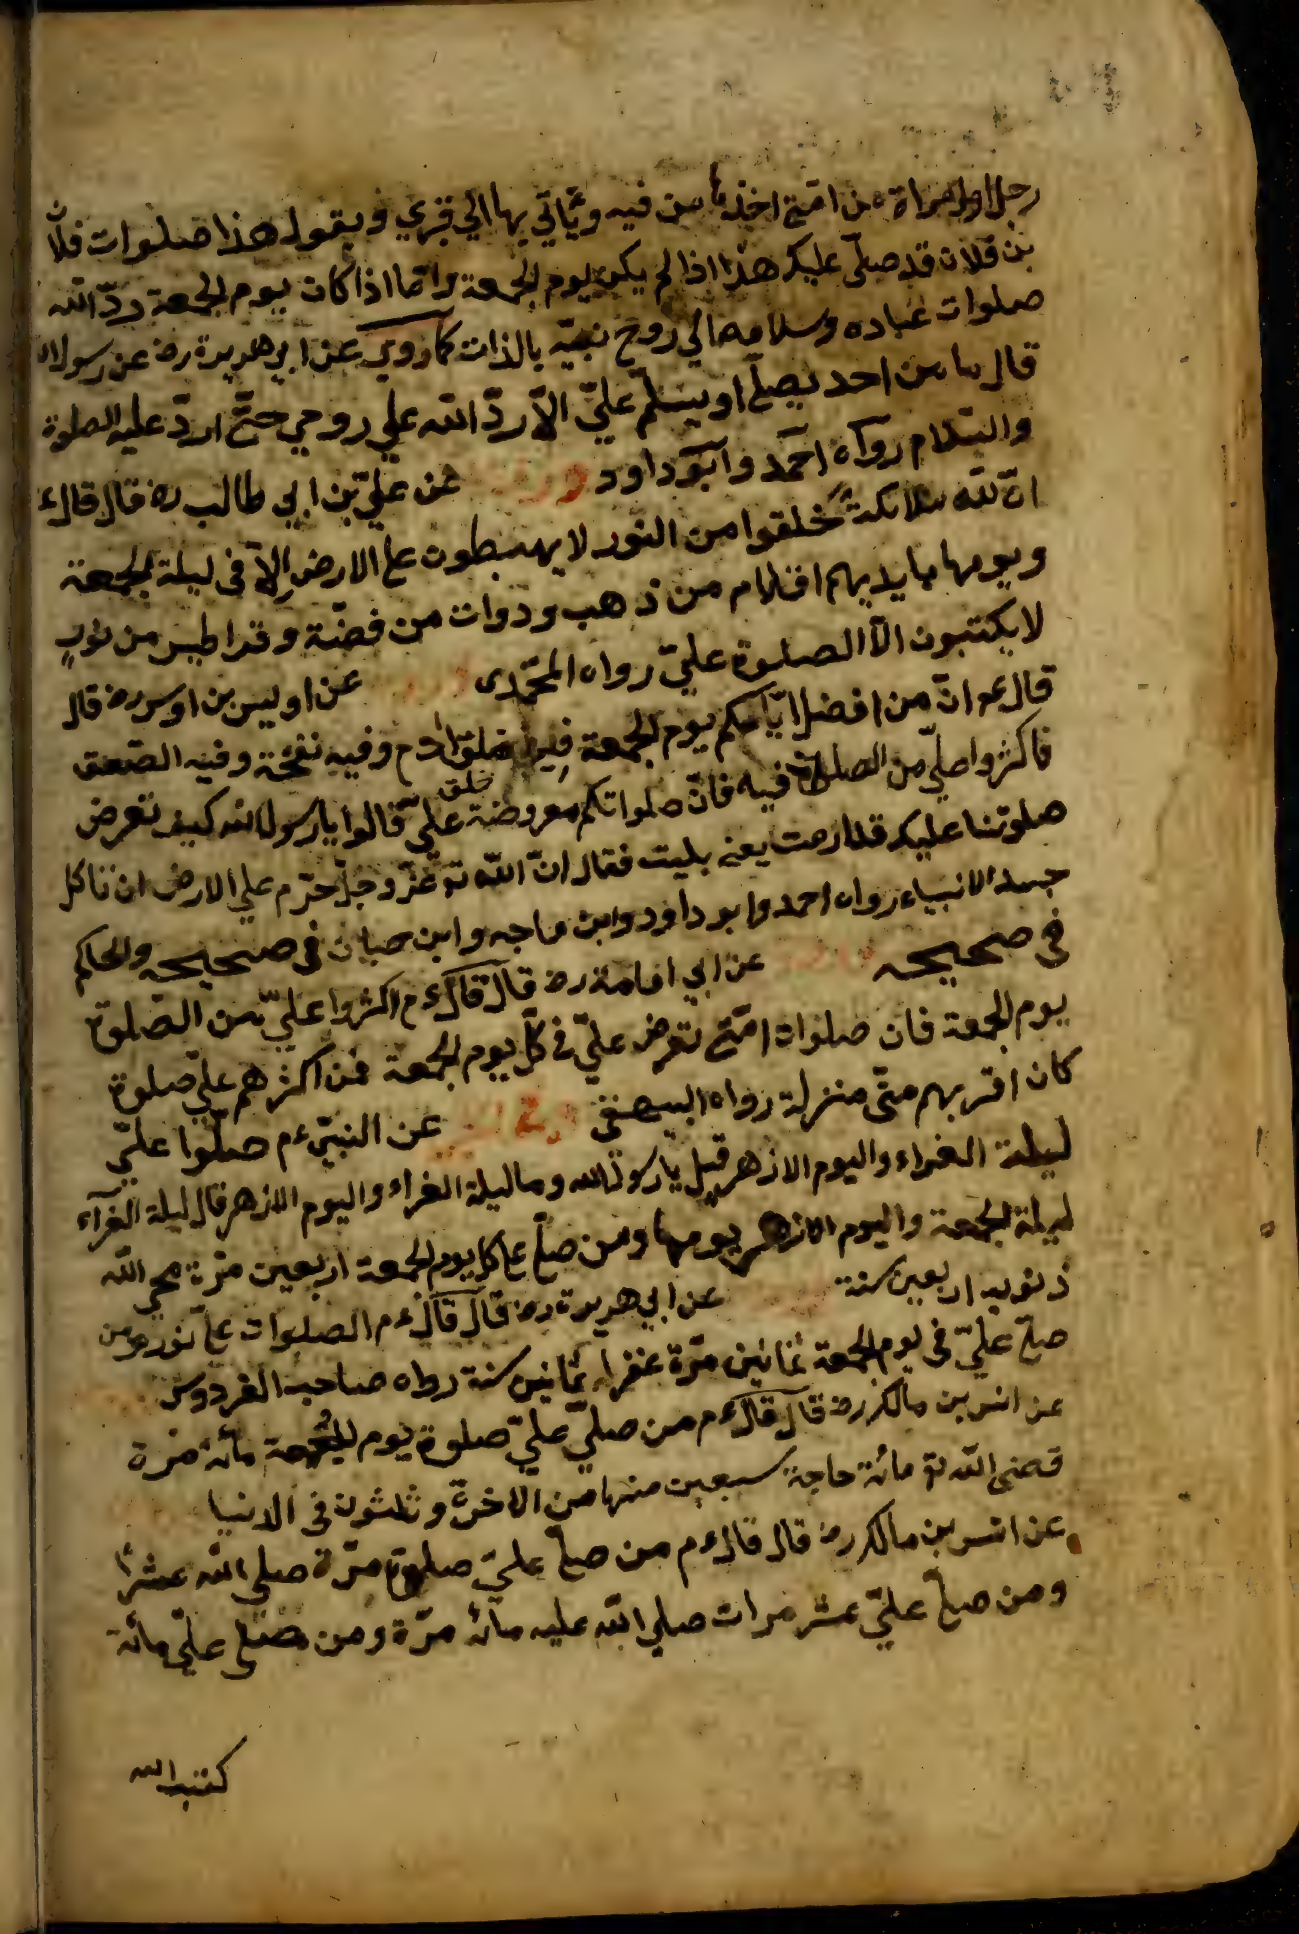 رجل او امراة من امتي اخذها من فيه ويأتي بها الي قبري ويقول هذا صلوات فلان
بن فلان قد صلّي عليك هذا اذا لم يكن يوم الجمعة وامّا اذا كان يوم الجمعة ردّ الله
صلوات عباده وسلامه الي روح نبيّه بالذات كما روي عن ابي هريرة رض عن رسول الله
قال ما من احد يصلّي او يسلّم عليّ الّا ردّ الله علي روحي حتّي اردّ عليه الصلوة
والسّلام رواه احمد وابو داود عن عليّ بن ابي طالب رض قال قال ع
انّ لله ملائكة خلقوا من النور لا يهبطون علي الارض الّا في ليلة الجمعة
ويومها بايديهم اقلام من ذهب ودوات من فضّة وقراطيس من نورٍ
لا يكتبون الّا الصلوة عليّ رواه المحمّدي عن اويس بن اوس رض قال
قال عم انّ من افضل ايّامكم يوم الجمعة فيه خلق ادم وفيه نفخة وفيه الصّعق
فاكثروا عليّ من الصلوة فيه فانّ صلواتكم معروضة عليّ قالوا يا رسول الله كيف تعرض
صلوتنا عليك قد ارمت يعني بليت فقال انّ الله تع عزّ وجلّ حرّم علي الارض ان تاكل
جسد الانبياء رواه احمد وابو داود وابن ماجه وابن حبان في صحيحه والحاكم
في صحيحه عن ابي امامة رض قال قال ع م اكثروا عليّ من الصّلوة
يوم الجمعة فان صلوات امّتي تعرض عليّ في كلّ يوم الجمعة فمن اكثرهم عليّ صلوة
كان اقربهم منّي منزلة رواه البيهقي عن النبيّ ع م صلّوا عليّ
ليلة الغراء واليوم الازهر قيل يا رسول الله وما ليلة الغراء واليوم الازهر قال ليلة الغرّاء
ليلة الجمعة واليوم الازهر يومها ومن صلّي عليّ كل يوم الجمعة اربعين مرّة محي الله
ذنوبه اربعين سنة عن ابي هريرة رض قال قال ع م الصلوات عليّ نور ومن
صلّي عليّ في يوم الجمعة ثمانين مرّة غفر له ثمانين سنة رواه صاحب الفردوس
عن انس بن مالك رض قال قال ع م من صلّي عليّ صلوة يوم الجمعة مائة مرة
قضي الله تع مائة حاجة سبعين منها من الاخرة وثلثون في الدنيا
عن انس بن مالك رض قال قال ع م من صلّي عليّ صلوة مرّة صلي الله عشرا
ومن صلّي عليّ عشر مرات صلي الله عليه مائة مرّة ومن صلّي عليّ مائة
كتب الله